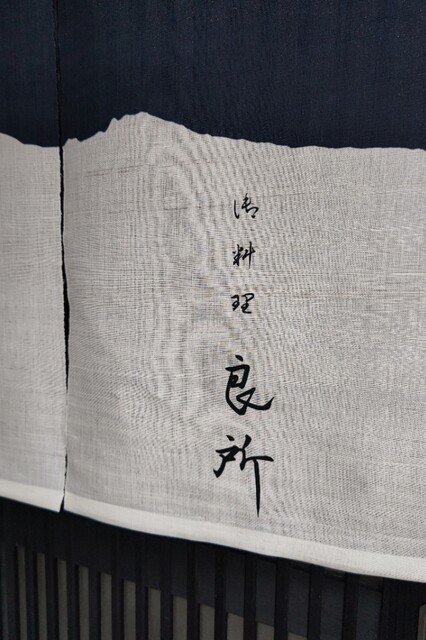 御料理
良所